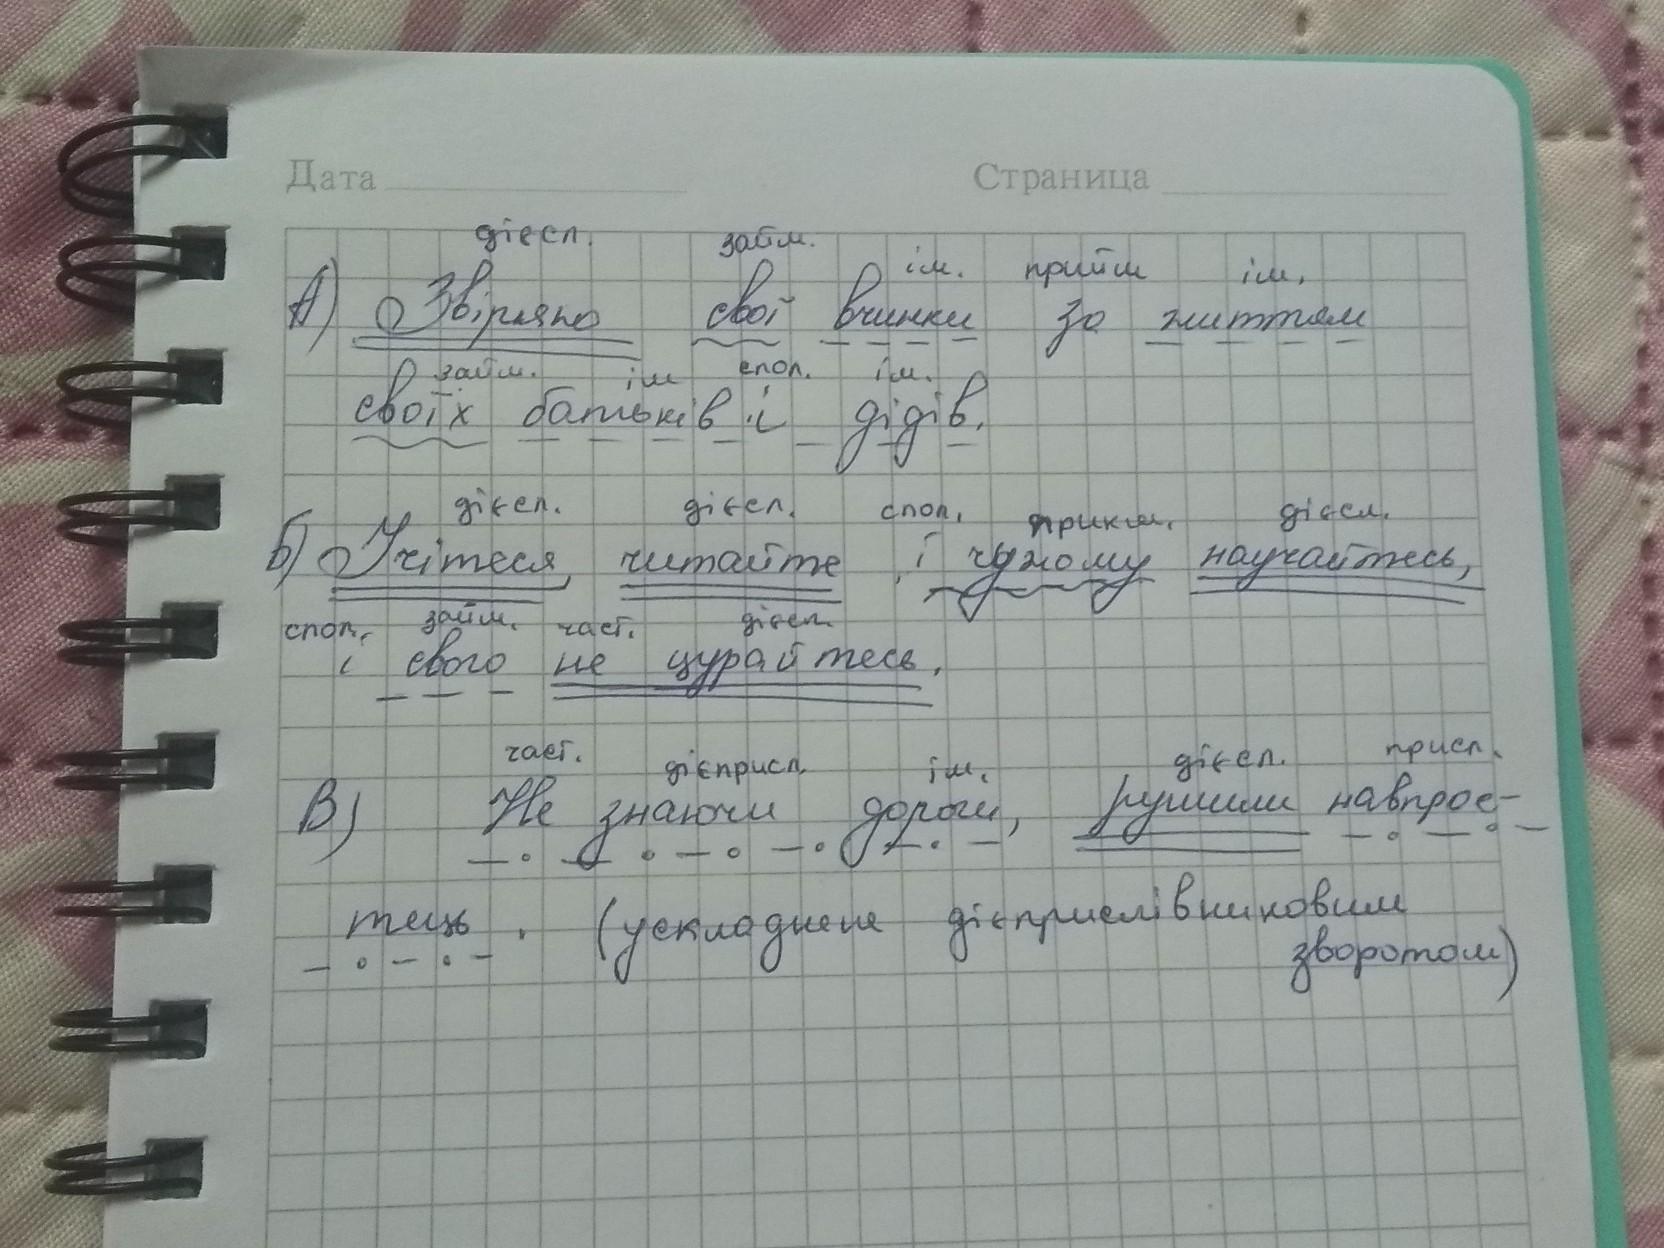 Дата Страница
дієсл. займ. ім. прийм ім.
А) Звіряно свої вчинки за життям
займ. ім спол. ім.
своїх батьків і дідів.
дієсл. дієсл. спол. прикм. дієсл.
Б) Учітеся, читайте, і чужому научайтесь,
спол. займ. част. дієсл.
і свого не цурайтесь.
част. дієприсл. ім. дієсл. присл.
В) Не знаючи дороги, рушили навпрос-
тець. (ускладнене дієприслівниковим
зворотом)